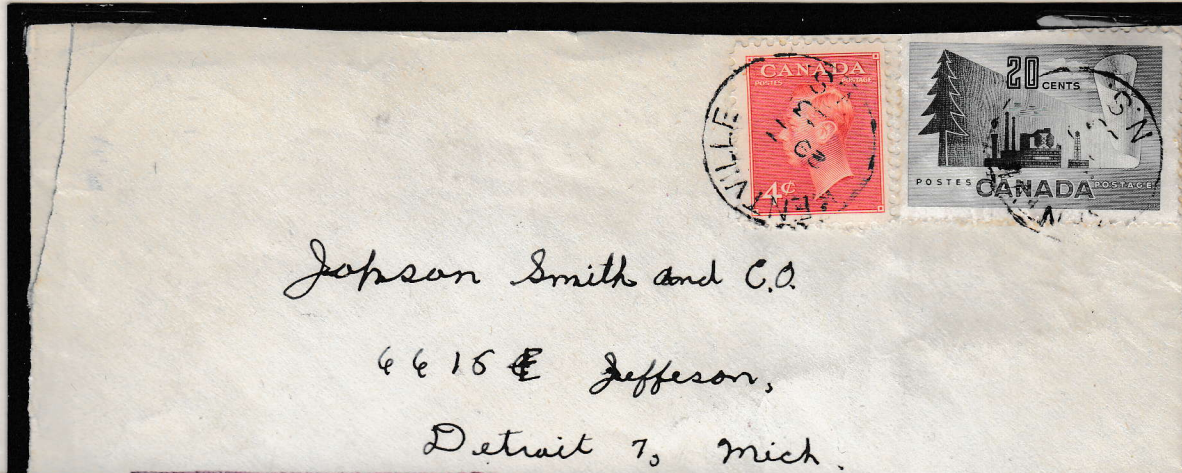 CANADA
POSTES POSTAGE
4¢
KENTVILLE
20 CENTS
POSTES CANADA POSTAGE
N.S.
Jopson Smith and C.O.
6616 E Jeffeson,
Detroit 7, Mich.